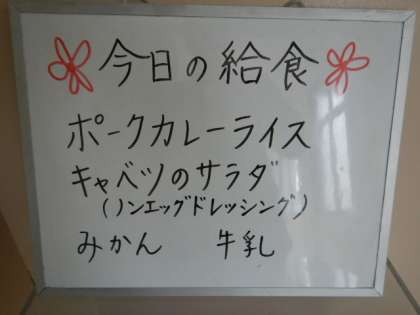 今日の給食
ポークカレーライス
キャベツのサラダ
(ノンエッグドレッシング)
みかん 牛乳